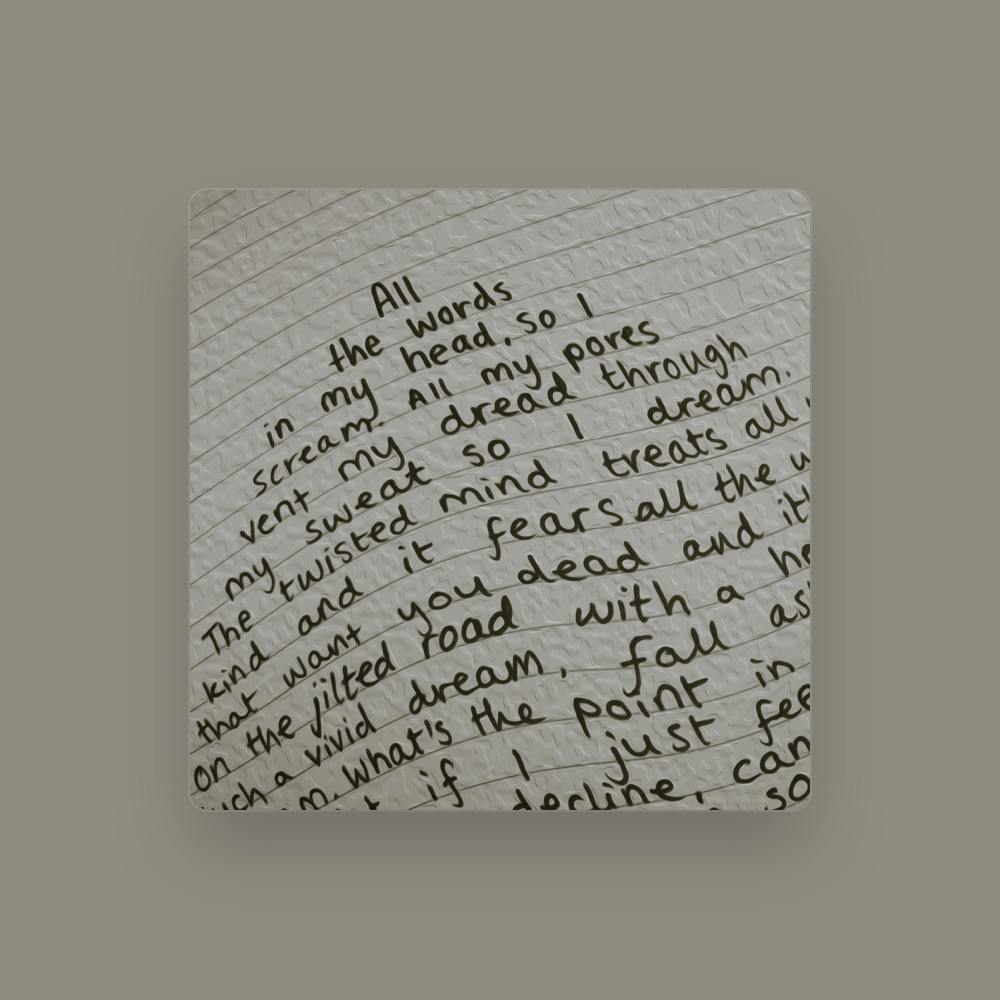 All
the words
in my head, so I
scream. All my pores
vent my dread through
my sweat so I dream.
The twisted mind treats all
kind and it fears all the
that want you dead and
on the jilted road with a
a vivid dream, fall
What's the point in
if I just
decline,